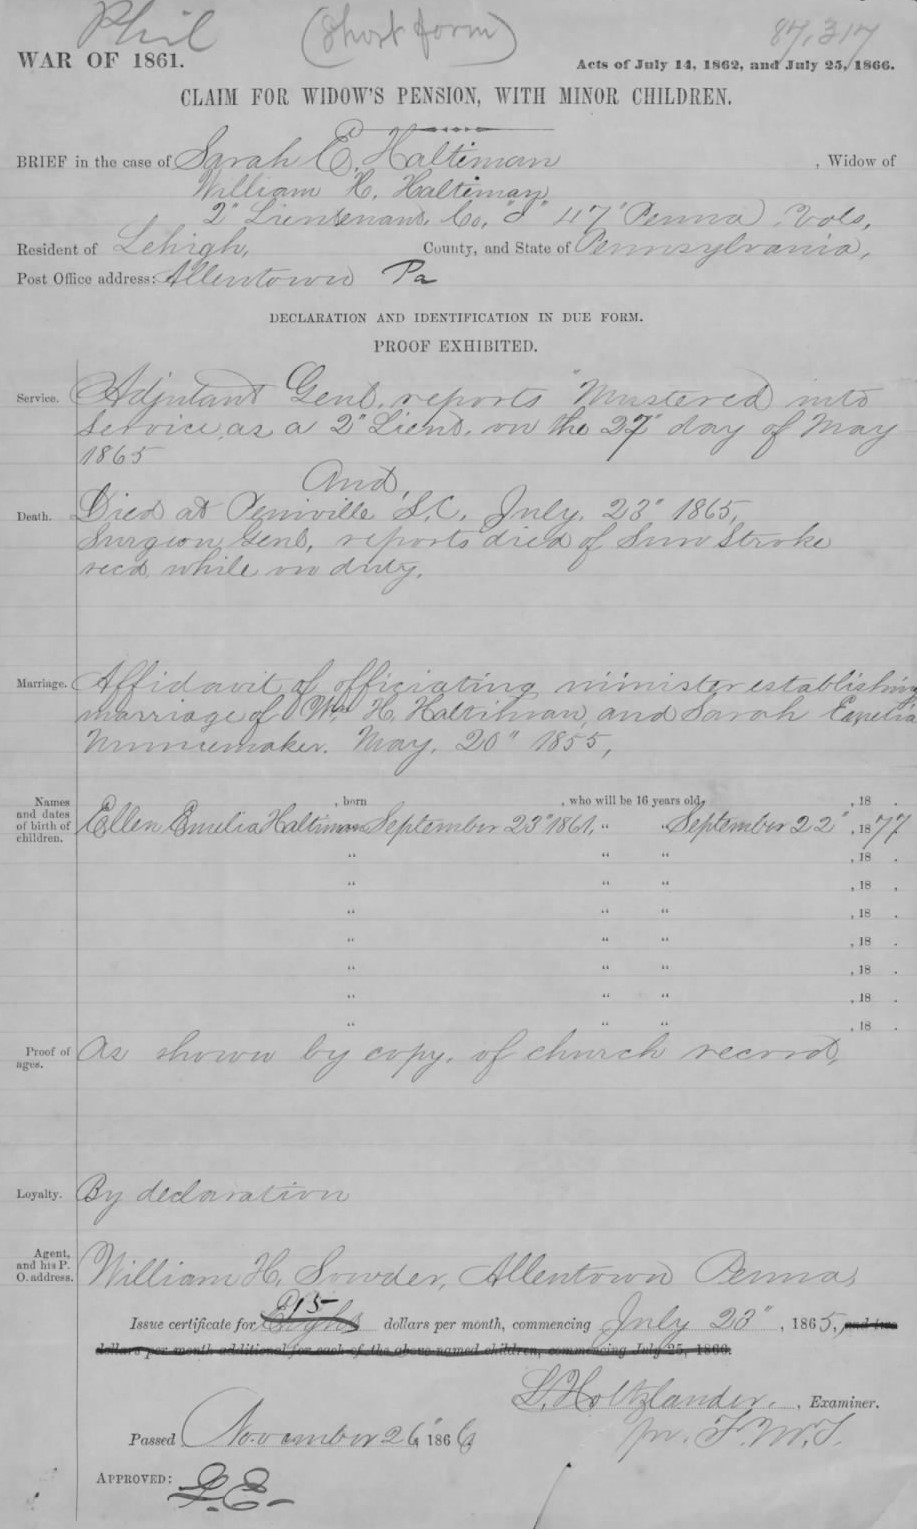 Phil (Short form) 87,317
WAR OF 1861. Acts of July 14, 1862, and July 25, 1866.
CLAIM FOR WIDOW'S PENSION, WITH MINOR CHILDREN.
BRIEF in the case of Sarah E. Haltiman , Widow of
William H. Haltiman
2" Lieutenant, Co, "I" 47" Penna Vols,
Resident of Lehigh, County, and State of Pennsylvania,
Post Office address: Allentown Pa
DECLARATION AND IDENTIFICATION IN DUE FORM.
PROOF EXHIBITED.
Service. Adjutant Genl. reports "Mustered into
service, as a 2" Lieut. on the 27" day of May
1865
And,
Death. Died at Peniville S.C. July, 23" 1865,
Surgeon Genl, reports died of Sun Stroke
recd while on duty.
Marriage. Affidavit of officiating minister establishing
marriage of Wm H. Haltiman, and Sarah Emelia
May, 20" 1855,
Names and dates of birth of children. , born , who will be 16 years old, , 18 .
Ellen Emelia Haltiman September 23" 1861, " " September 22" , 1877
" " " , 18 .
" " " , 18 .
" " " , 18 .
" " " , 18 .
" " " , 18 .
" " " , 18 .
" " " , 18 .
Proof of ages. As shown by copy, of church record,
Loyalty. By declaration
Agent, and his P. O. address. William H, Sowder, Allentown Penna,
15
Issue certificate for Eight dollars per month, commencing July 23" , 1865, and two
dollars per month additional for each of the above-named children, commencing July 25, 1866.
L. Holtzlander. , Examiner.
Passed November 26" 1866 pr. F.M.T.
APPROVED: G.E.